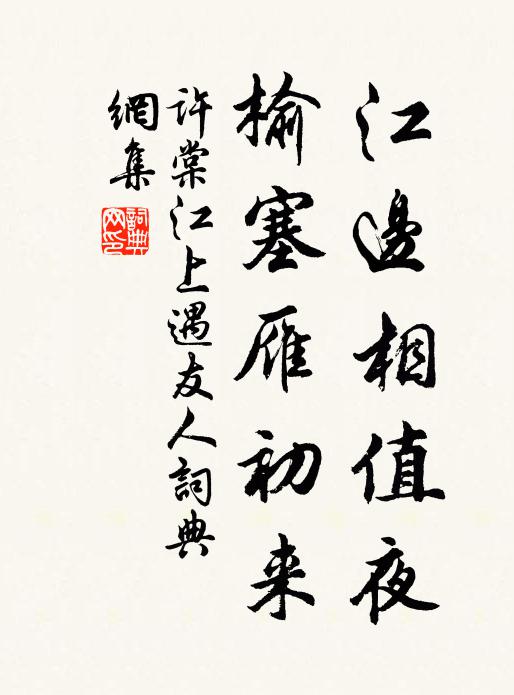 江邊相值夜
榆塞雁初来
许棠江上遇友人詞典
網集
詞典
网印